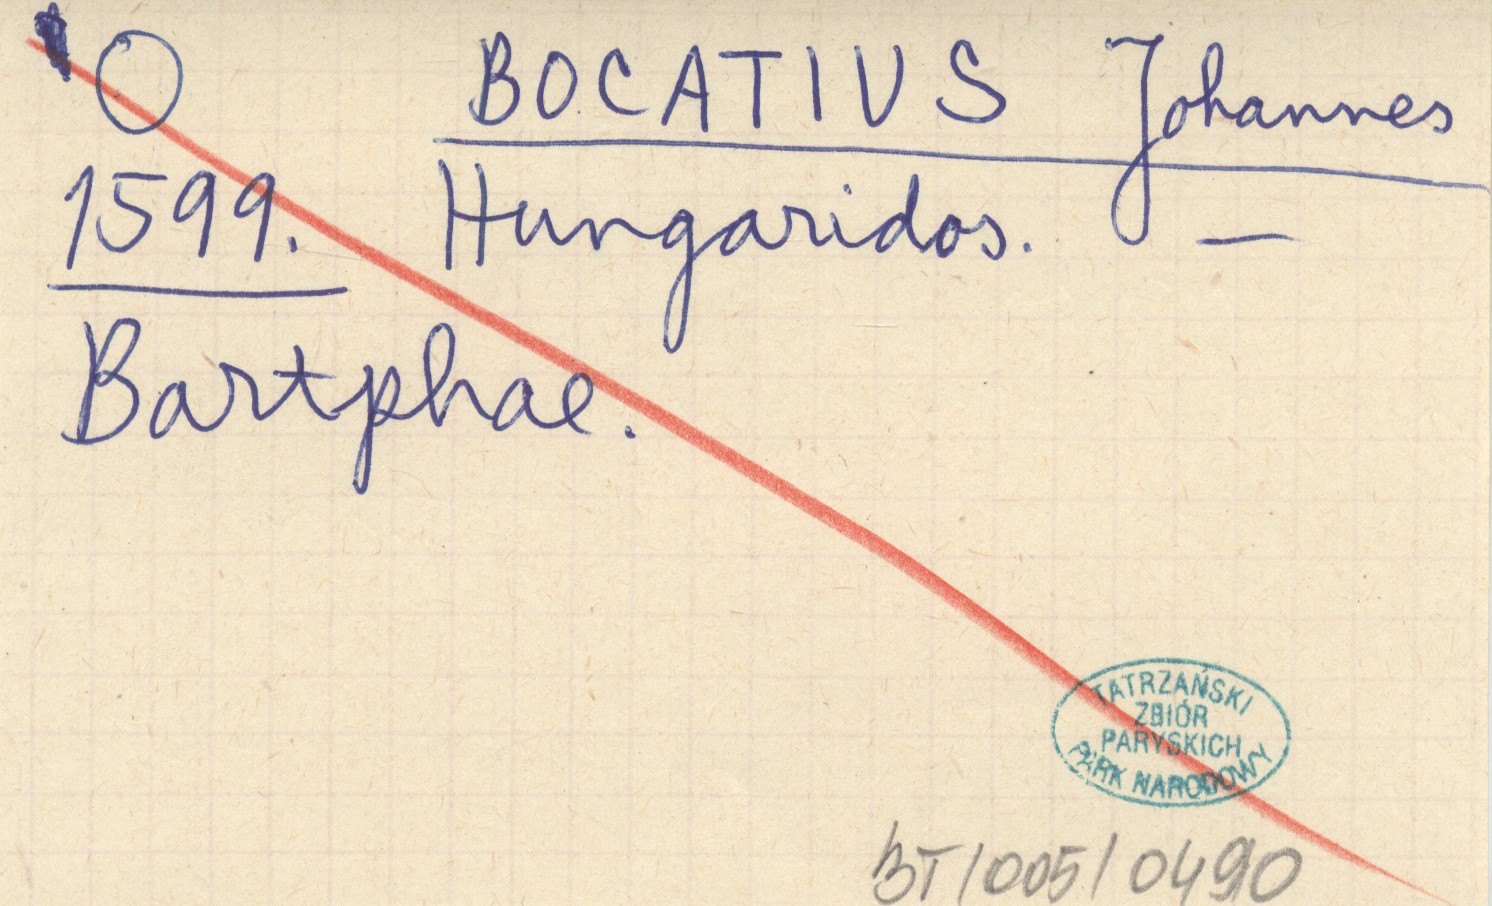 BOCATIUS Johannes
1599. Hungaridos. —
Bartphae.
TATRZAŃSKI
ZBIÓR
PARYSKICH
PARK NARODOWY
BT/005/0490